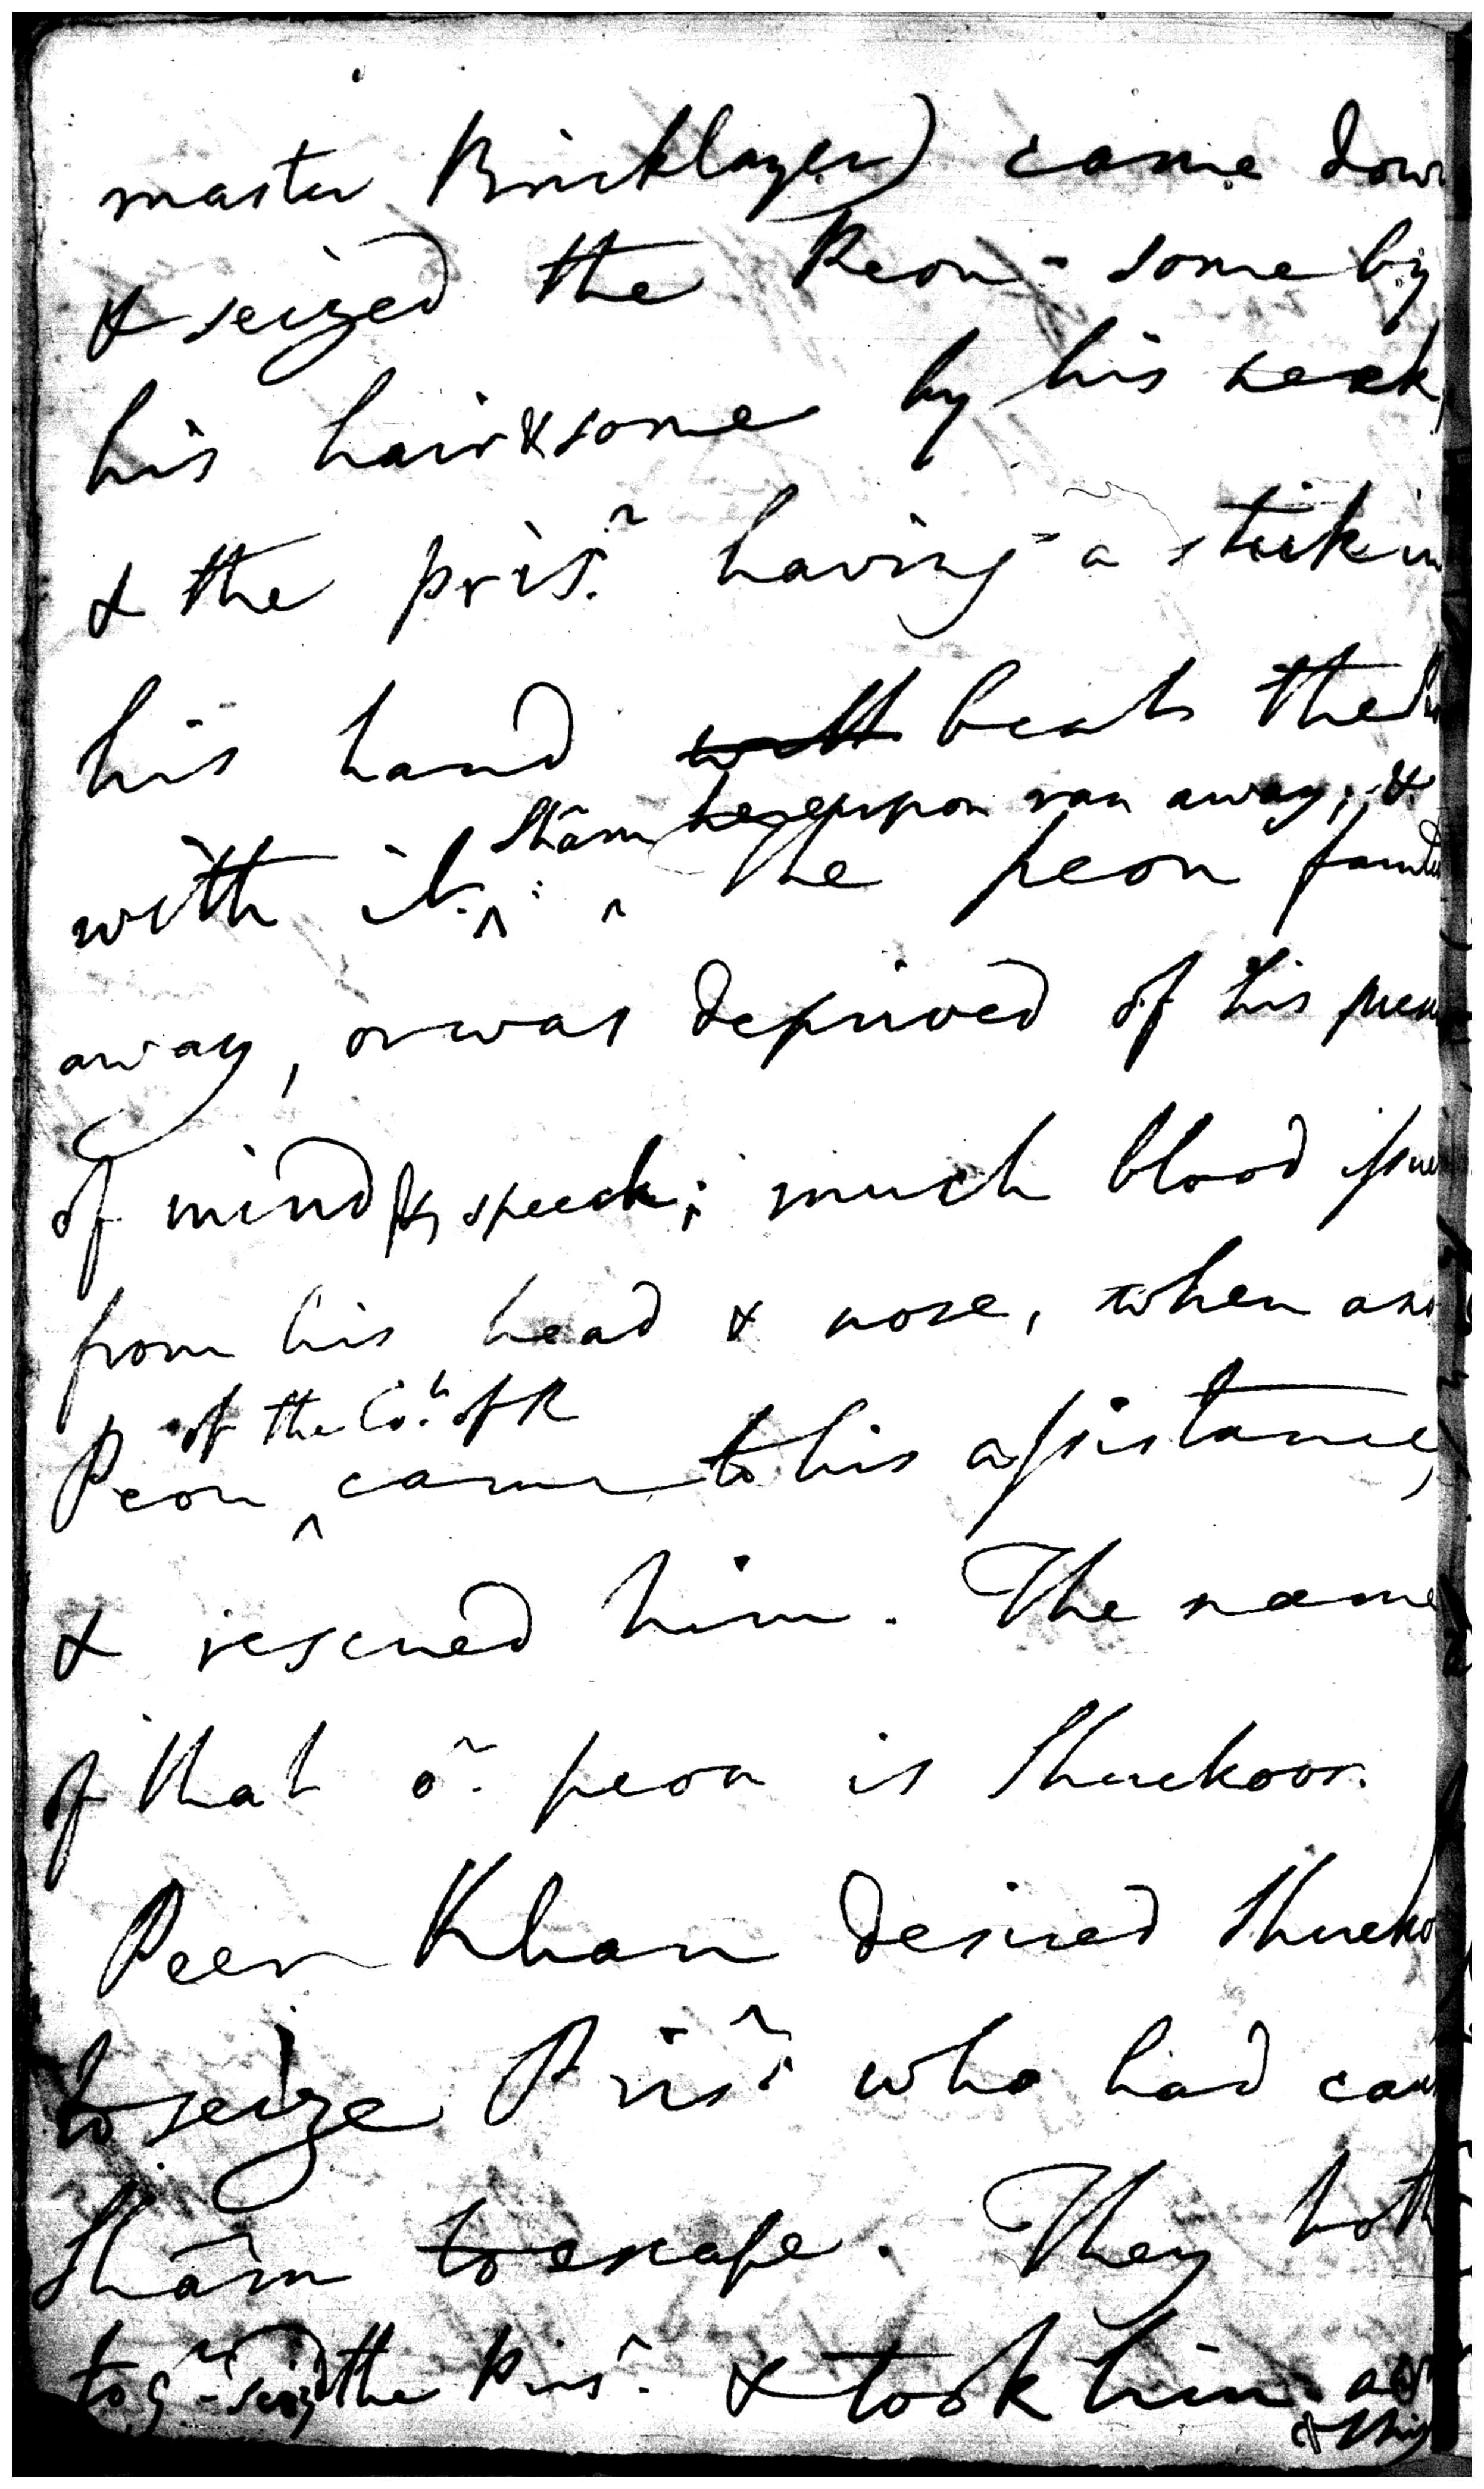 master Bricklayer) came down
& seized the Peon - some by
his hair & some by his neck,
& the pris.r having a stick in
his hand beats the
Shâm hereupon ran away; &
with it. The peon fainted
away, or was deprived of his
of mind & speech; much blood
from his head & nose, when
of the Co.t of R
Peon came to his assistance,
& rescued him. The name
of that o.r peon is Shuckoor.
Peer Khan desired
to seize Pris.r who had
Shâm to escape. They both
the Pris.r & took him